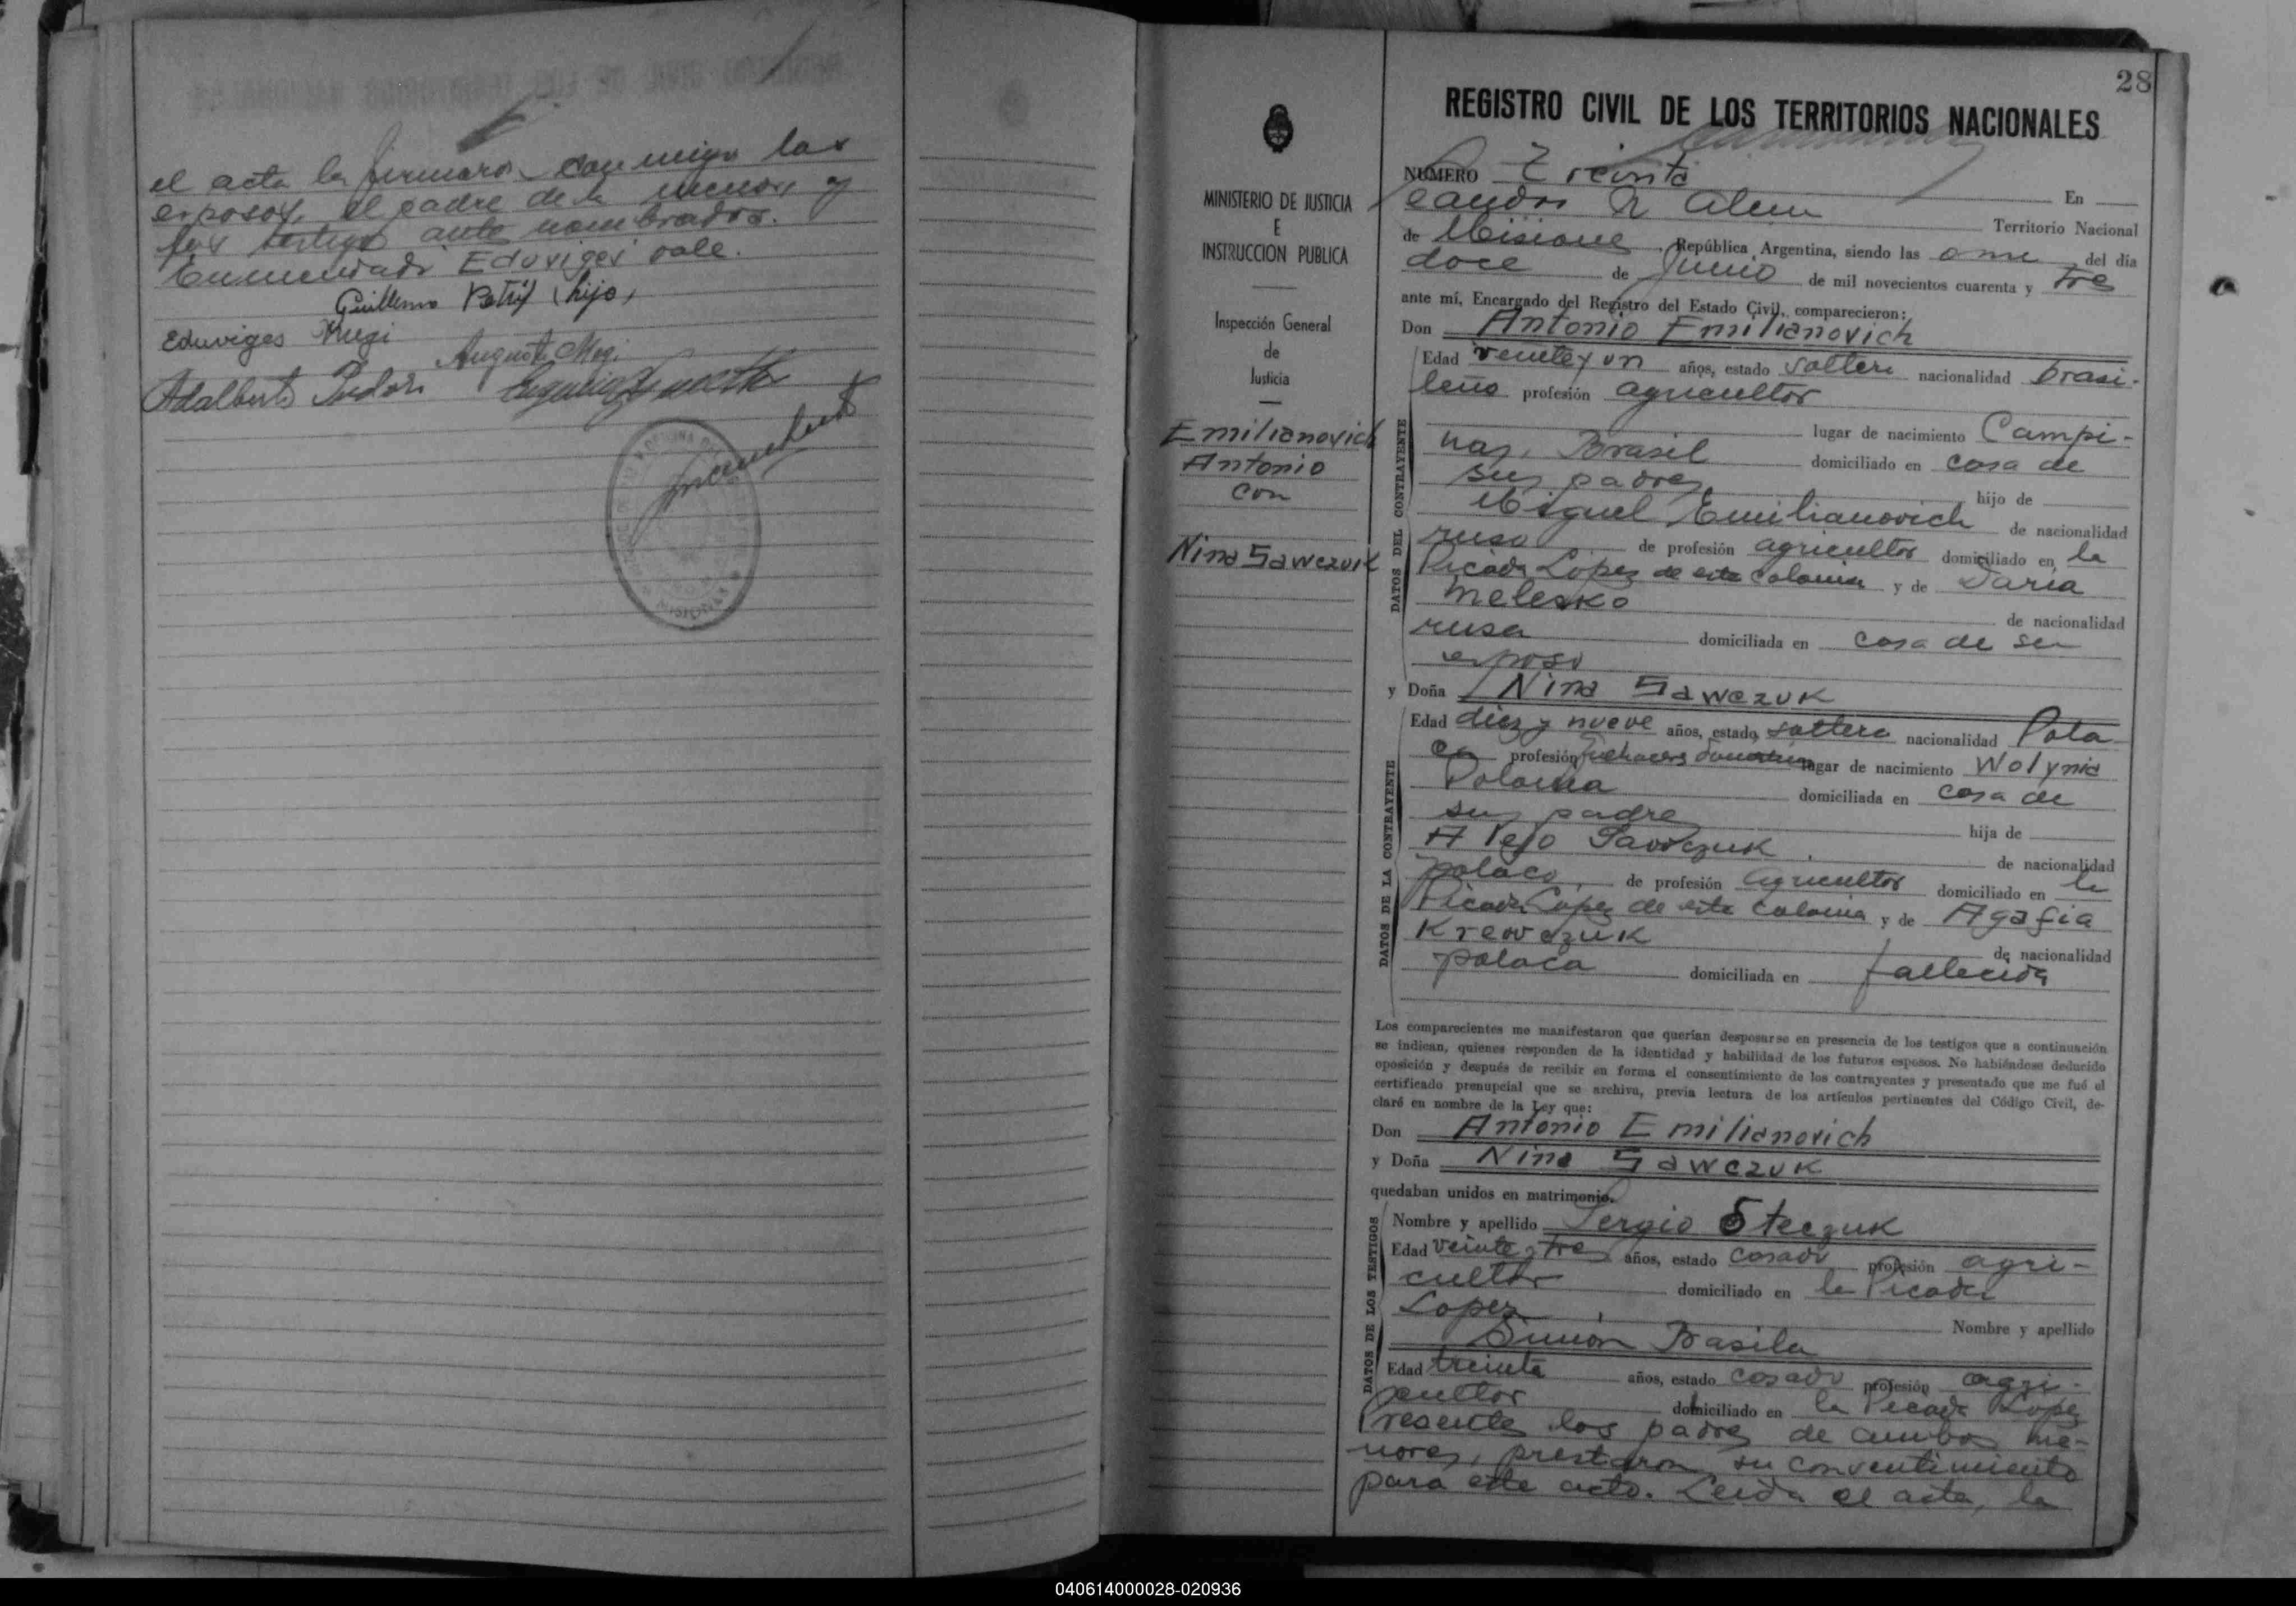 el acta la firmaron conmigo los
esposos, el padre de la menor y
los testigos ante nombrados.
Enmendado Eduviges vale.
Guillermo Petrij (hijo)
Eduviges Kugi
Augusto
Adalberto
28
REGISTRO CIVIL DE LOS TERRITORIOS NACIONALES
MINISTERIO DE JUSTICIA
E
INSTRUCCION PUBLICA
Inspección General
de
Justicia
Emilianovich
Antonio
con
Nina Sawczuk
NUMERO Treinta En
Leandro N Alem Territorio Nacional
de Misiones, República Argentina, siendo las once del día
doce de Junio de mil novecientos cuarenta y tres
ante mí, Encargado del Registro del Estado Civil, comparecieron:
Don Antonio Emilianovich
DATOS DEL CONTRAYENTE
Edad veinte y un años, estado soltero nacionalidad brasi-
leño profesión agricultor
lugar de nacimiento Campi-
nas, Brasil domiciliado en casa de
sus padres hijo de
Miguel Emilianovich de nacionalidad
ruso de profesión agricultor domiciliado en la
Picada Lopez de esta colonia y de Daria
Melesko de nacionalidad
rusa domiciliada en casa de su
esposo
y Doña Nina Sawczuk
DATOS DE LA CONTRAYENTE
Edad diez y nueve años, estado soltera nacionalidad Pola-
ca profesión quehaceres domésticos lugar de nacimiento Wolynia
Polonia domiciliada en casa de
sus padres hija de
Alejo Sawczuk de nacionalidad
polaco, de profesión agricultor domiciliado en la
Picada Lopez de esta colonia y de Agafia
Krewczuk de nacionalidad
polaca domiciliada en fallecida
Los comparecientes me manifestaron que querían desposarse en presencia de los testigos que a continuación
se indican, quienes responden de la identidad y habilidad de los futuros esposos. No habiéndose deducido
oposición y después de recibir en forma el consentimiento de los contrayentes y presentado que me fué el
certificado prenupcial que se archiva, previa lectura de los artículos pertinentes del Código Civil, de-
claré en nombre de la Ley que:
Don Antonio Emilianovich
y Doña Nina Sawczuk
quedaban unidos en matrimonio.
DATOS DE LOS TESTIGOS
Nombre y apellido Sergio Steczuk
Edad veinte y tres años, estado casado profesión agri-
cultor domiciliado en la Picada
Lopez, Nombre y apellido
Simón Basila
Edad treinta años, estado casado profesión agri-
cultor domiciliado en la Picada Lopez
Presente los padres de ambos me-
nores, prestaron su consentimiento
para este acto. Leida el acta, la
040614000028-020936